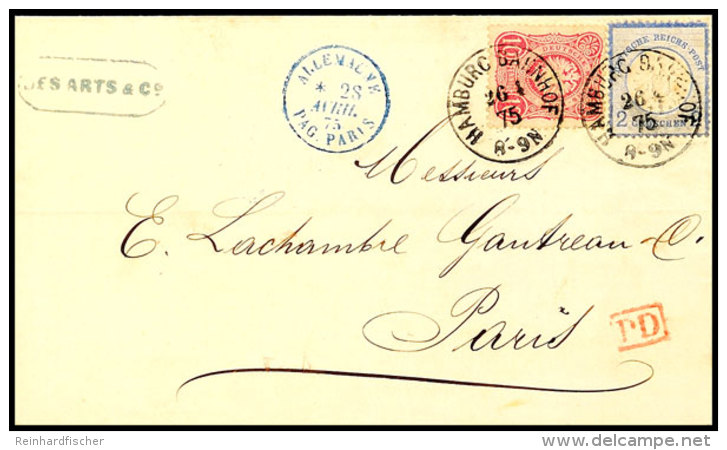 DES ARTS & Co
ALLEMAGNE
* 28
AVRIL
75
PAG. PARIS
10
HAMBURG BAHNHOF
26 4
75
8-9N
DEUTSCHE REICHS-POST
2 GROSCHEN
HAMBURG BAHNHOF
26 4
75
8-9N
Messieurs
E. Lachambre Gautreau & Co.
Paris
PD
Reinhardfischer
delcampe.net